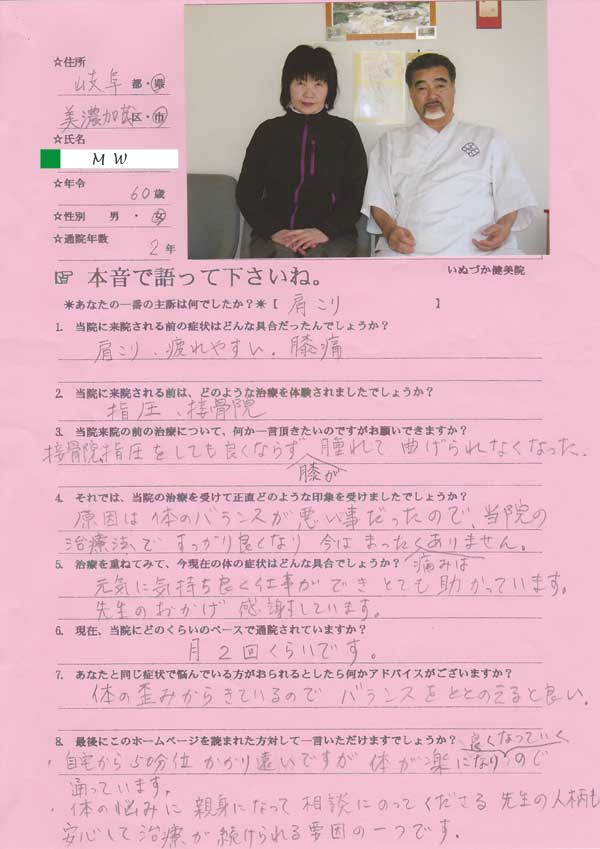 ☆住所
岐阜 都・県
美濃加茂 区・市
☆氏名
MW
☆年令
60歳
☆性別 男・女
☆通院年数
2年
いぬづか健美院
本音で語って下さいね。
＊あなたの一番の主訴は何でしたか？＊【 肩こり 】
1. 当院に来院される前の症状はどんな具合だったんでしょうか？
肩こり、疲れやすい。膝痛
2. 当院に来院される前は、どのような治療を体験されましたでしょうか？
指圧、接骨院
3. 当院来院の前の治療について、何か一言頂きたいのですがお願いできますか？
接骨院、指圧をしても良くならず 膝が 腫れて 曲げられなくなった。
4. それでは、当院の治療を受けて正直どのような印象を受けましたでしょうか？
原因は体のバランスが悪い事だったので、当院の
治療法で すっかり良くなり 今は 痛みは まったくありません。
5. 治療を重ねてみて、今現在の体の症状はどんな具合でしょうか？
元気に気持ち良く仕事ができ とても 助かっています。
先生のおかげ 感謝しています。
6. 現在、当院にどのくらいのペースで通院されていますか？
月2回くらいです。
7. あなたと同じ症状で悩んでいる方がおられるとしたら何かアドバイスがございますか？
体の歪みからきているので バランスをととのえると良い。
8. 最後にこのホームページを読まれた方対して一言いただけますでしょうか？
・自宅から50分位 かかり遠いですが 体が楽になり 良くなっていくので
通っています。
・体の悩みに 親身になって 相談にのってくださる 先生の人柄も
安心して治療が続けられる要因の一つです。